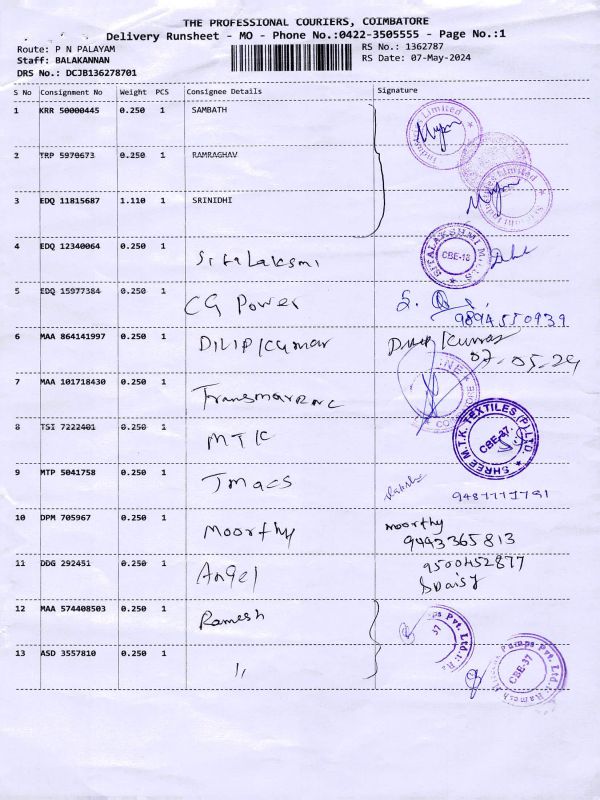 THE PROFESSIONAL COURIERS, COIMBATORE
Delivery Runsheet - MO - Phone No.:0422-3505555 - Page No.:1
Route: P N PALAYAM RS No.: 1362787
Staff: BALAKANNAN RS Date: 07-May-2024
DRS No.: DCJB136278701
S No Consignment No Weight PCS Consignee Details Signature
1 KRR 50000445 0.250 1 SAMBATH
2 TRP 5970673 0.250 1 RAMRAGHAV
3 EDQ 11815687 1.110 1 SRINIDHI
4 EDQ 12340064 0.250 1 Sitalaksmi CBE-18
5 EDQ 15977384 0.250 1 CG Power 9894550939
6 MAA 864141997 0.250 1 DILIP KUMAR Dilip Kumar
07-05-24
7 MAA 101718430 0.250 1
8 TSI 7222401 0.250 1 MTK SHREE M.T.K. TEXTILES (P) LTD. CBE-37
9 MTP 5041758 0.250 1 Jmacs
10 DPM 705967 0.250 1 Moorthy moorthy
9443365813
11 DDG 292451 0.250 1 Angel 9500452877
SDaisy
12 MAA 574408503 0.250 1 Ramesh Pvt. Ltd. 37
13 ASD 3557810 0.250 1 " Pumps Pvt. Ltd. CBE-37